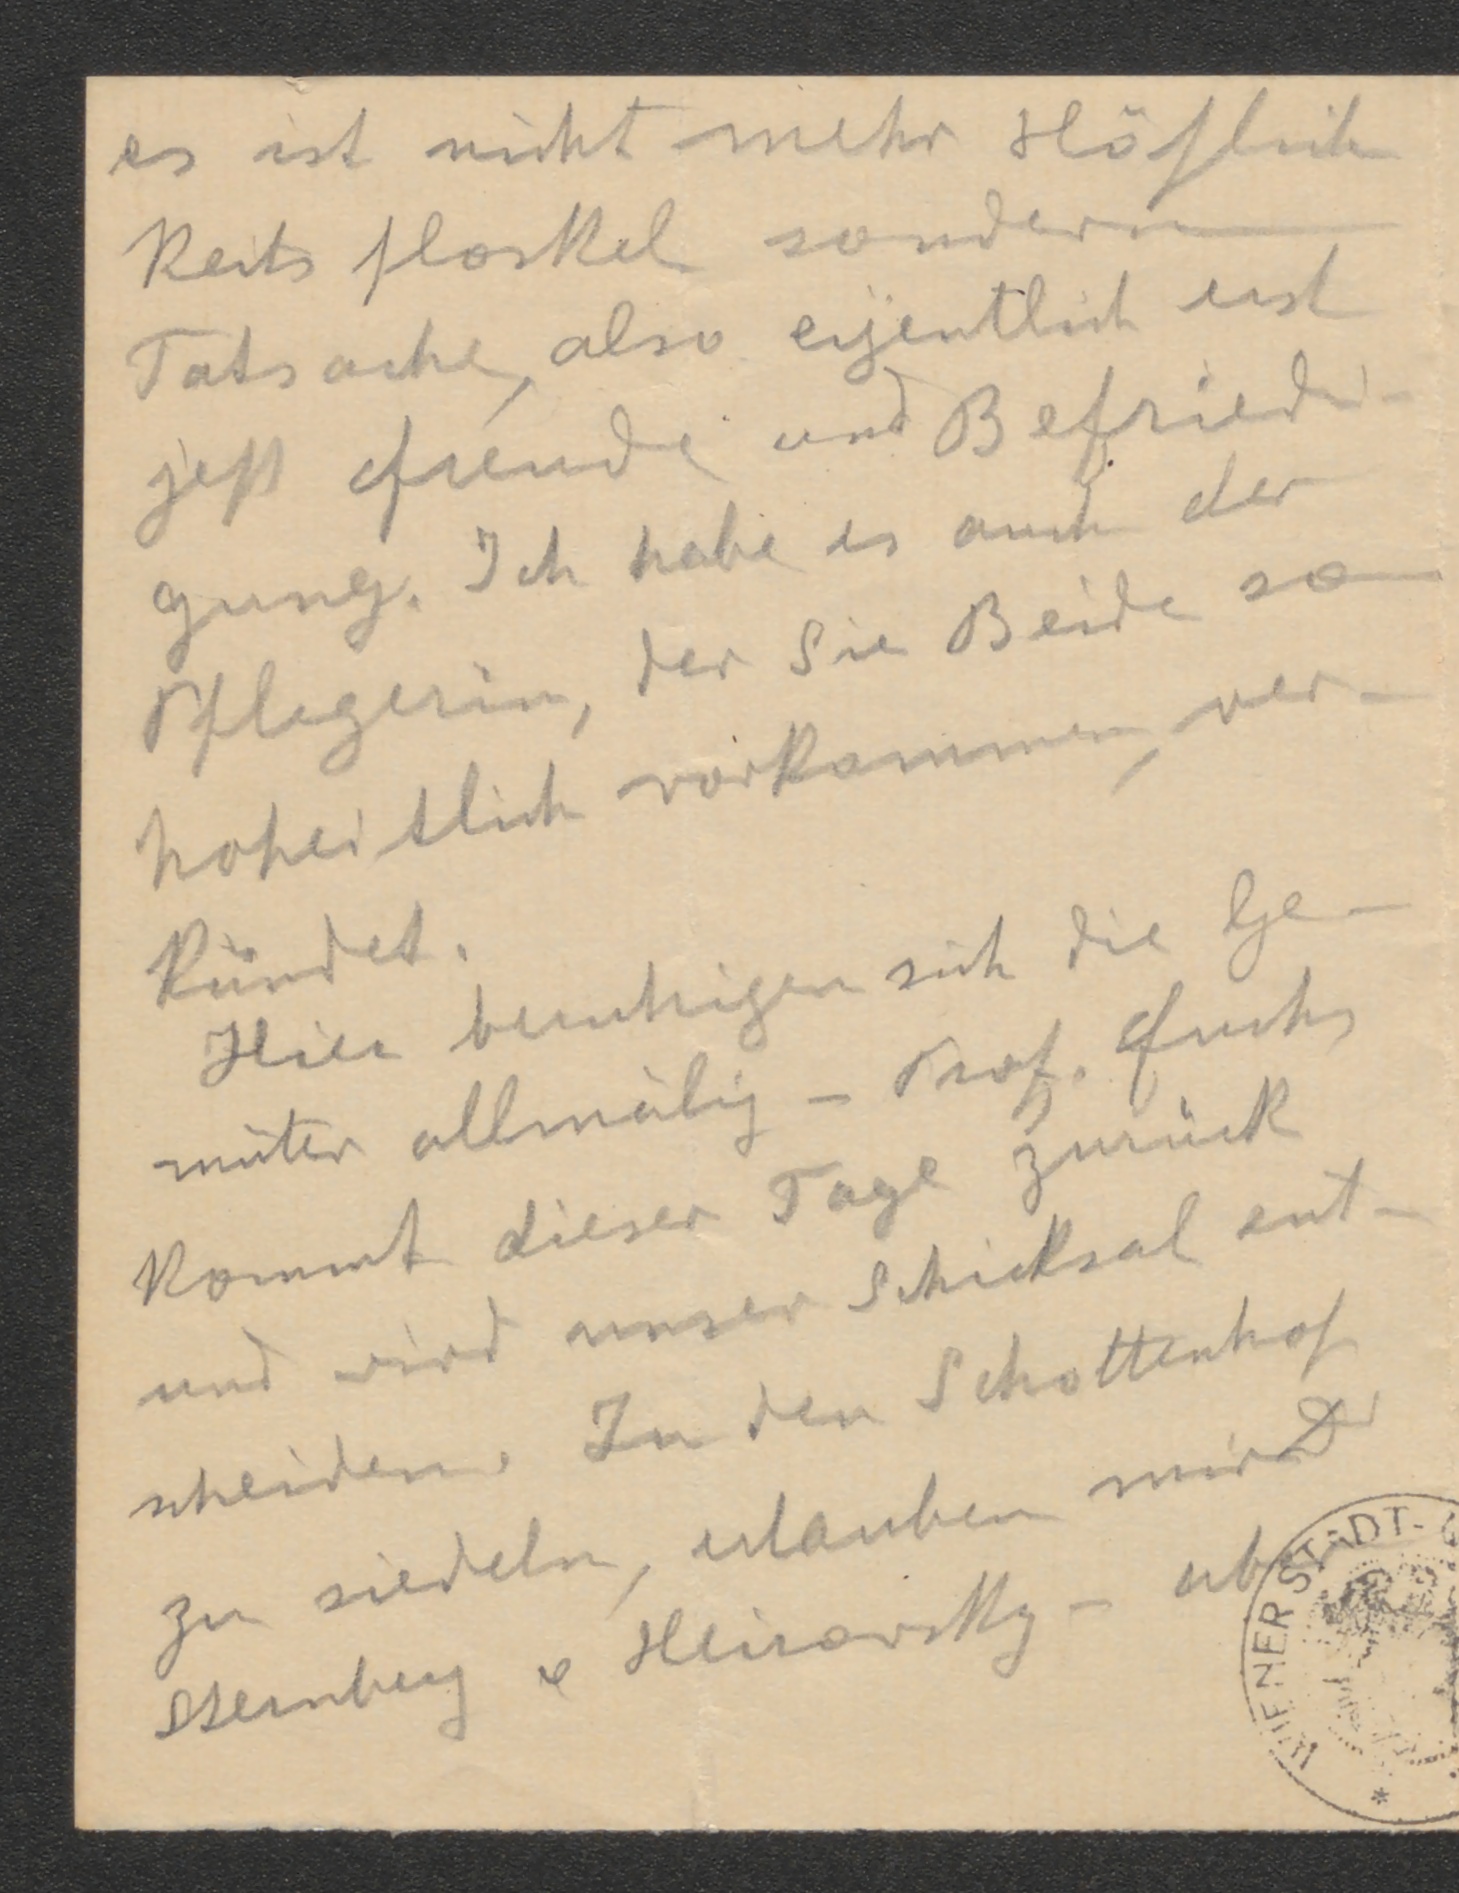 es ist nicht mehr Höflich
keits floskel sondern
Tatsache, also eigentlich erst
jetzt Freude und Befriedi-
gung. Ich habe es auch der
Pflegerin, der Sie Beide so
hoheitlich vorkommen, ver-
kündet.
Hier beruhigen sich die Ge-
müter allmälig – Prof. Fuchs
kommt dieser Tage zurück
und wird unser Schicksal ent-
scheiden. In den Schottenhof
zu siedeln, erlauben mir Dr
Sternberg & Heirovsky – ab
WIENER STADT-